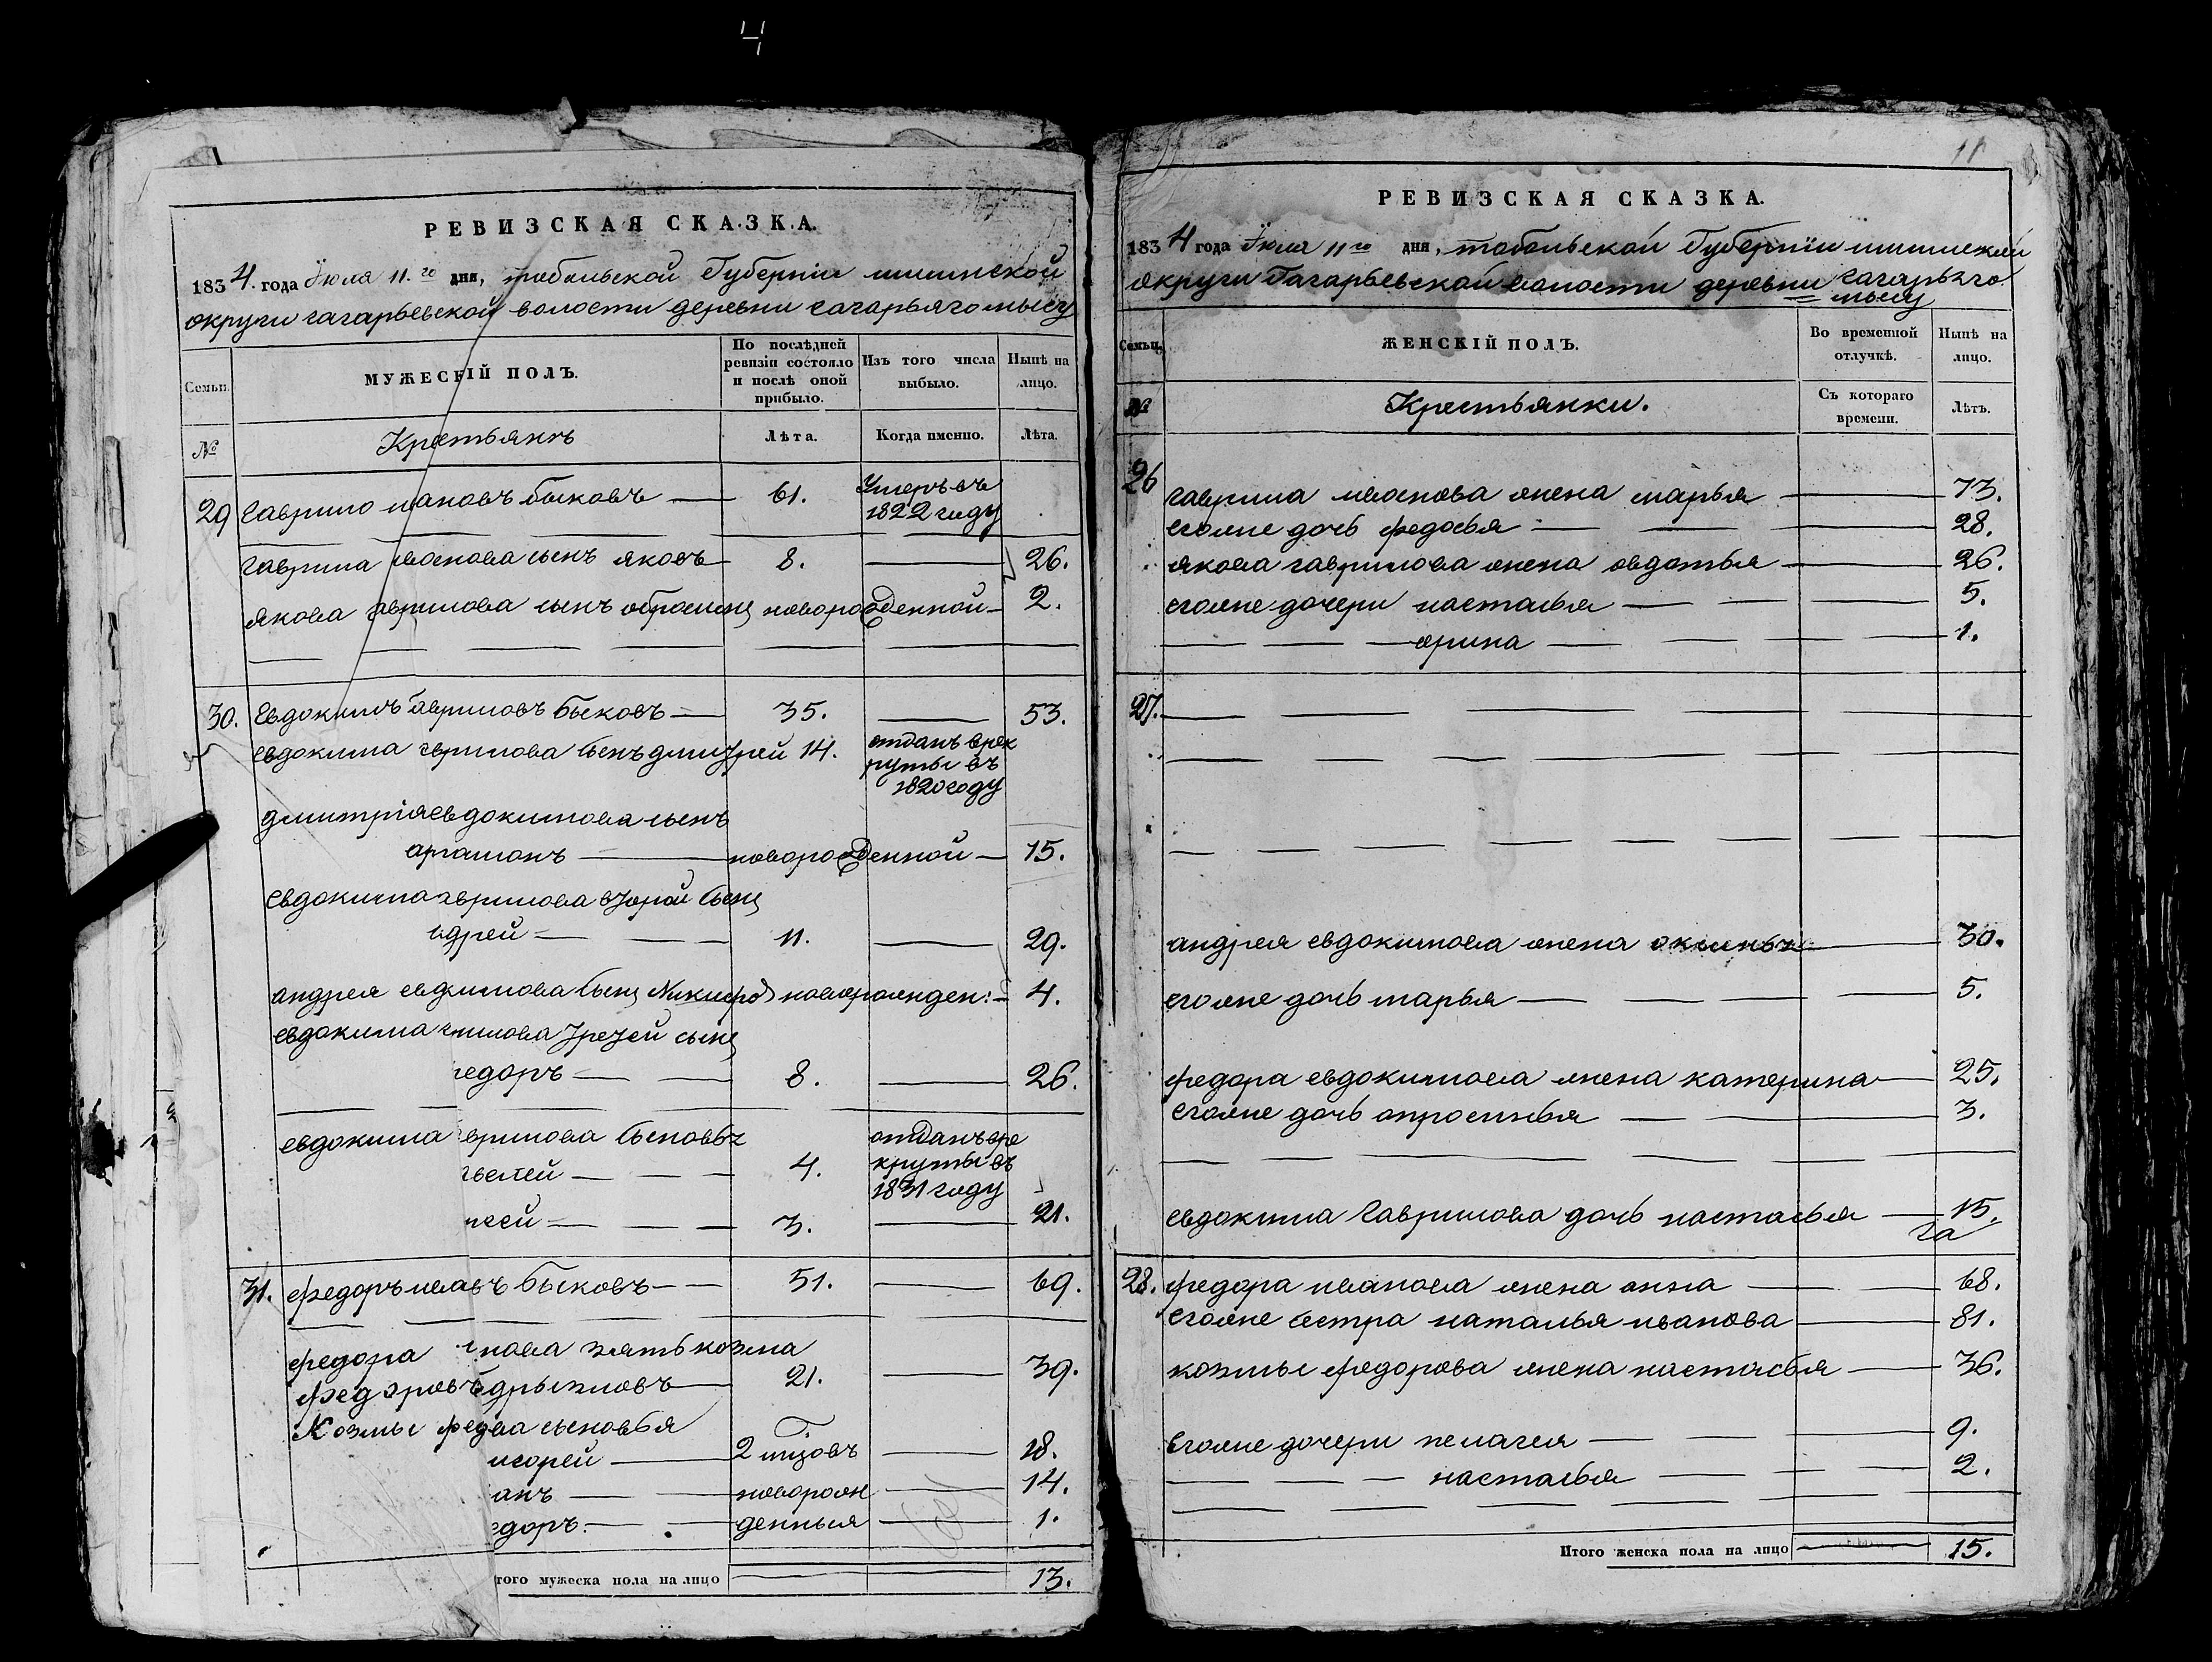 4
РЕВИЗСКАЯ СКАЗКА.
1834. года Июля 11.го дня, тобольской Губернiи ишимской
округи гагарьевской волости деревни гагарьяго мысу
Семьи.
МУЖЕСКІЙ ПОЛЪ.
По послѣдней ревизіи состояло и послѣ оной прибыло.
Изъ того числа выбыло.
Нынѣ на лицо.
№
Крестьянъ
Лѣта.
Когда именно.
Лѣта.
29 гаврило ивановъ быковъ — 61. Умеръ въ
1822 году
гаврила иванова сынъ яковъ 8. — 26.
якова гаврилова сынъ новорожденной — 2.
30. Евдокимъ гавриловъ быковъ — 35. — 53.
евдокима гврилова сынъ дмитрей 14. отданъ врек
руты въ
1820 году
дмитрiя евдокимова сынъ
артамонъ — новорожденной — 15.
Евдокима гврилова второй сынъ
ндрей — 11. — 29.
андрея евдкимова сынъ Никифоръ новорожден: 4.
евдокима рилова третей сынъ
едоръ — 8. — 26.
евдокима врилова сыновья
4. отданъ вре
круты въ
1831 году
3. — 21.
31. федоръ ивавъ быковъ — 51. — 69.
федора нова зять козма
федоровъ 21. — 39.
Козмы федва сыновья
игорей — 2 мцовъ — 18.
анъ — новорож — 14.
едоръ. — денныя — 1.
того мужеска пола на лицо 13.
11
РЕВИЗСКАЯ СКАЗКА.
1834 года Июля 11го дня, тобольской Губернiи ишимской
округи Гагарьевской волости деревни гагарьяго
= мысу
Семьи.
ЖЕНСКІЙ ПОЛЪ.
Во временной отлучкѣ.
Нынѣ на лицо.
№
Крестьянки.
Съ котораго времени.
Лѣтъ.
26 гаврила иванова жена марья — 73.
егоже дочь федосья — 28.
якова гаврилова жена овдотья — 26.
егоже дочери настасья — 5.
орина — 1.
27.
андрея евдокимова жена оксинья — 30.
егоже дочь марья — 5.
федора евдокимова жена катерина — 25.
егоже дочь апросинья — 3.
евдокима Гаврилова дочь настасья — 15.
28. федора иванова жена анна — 68.
егоже сестра наталья иванова — 81.
козмы федорова жена настасья — 36.
Егоже дочери пелагея — 9.
настасья — 2.
Итого женска пола на лицо 15.